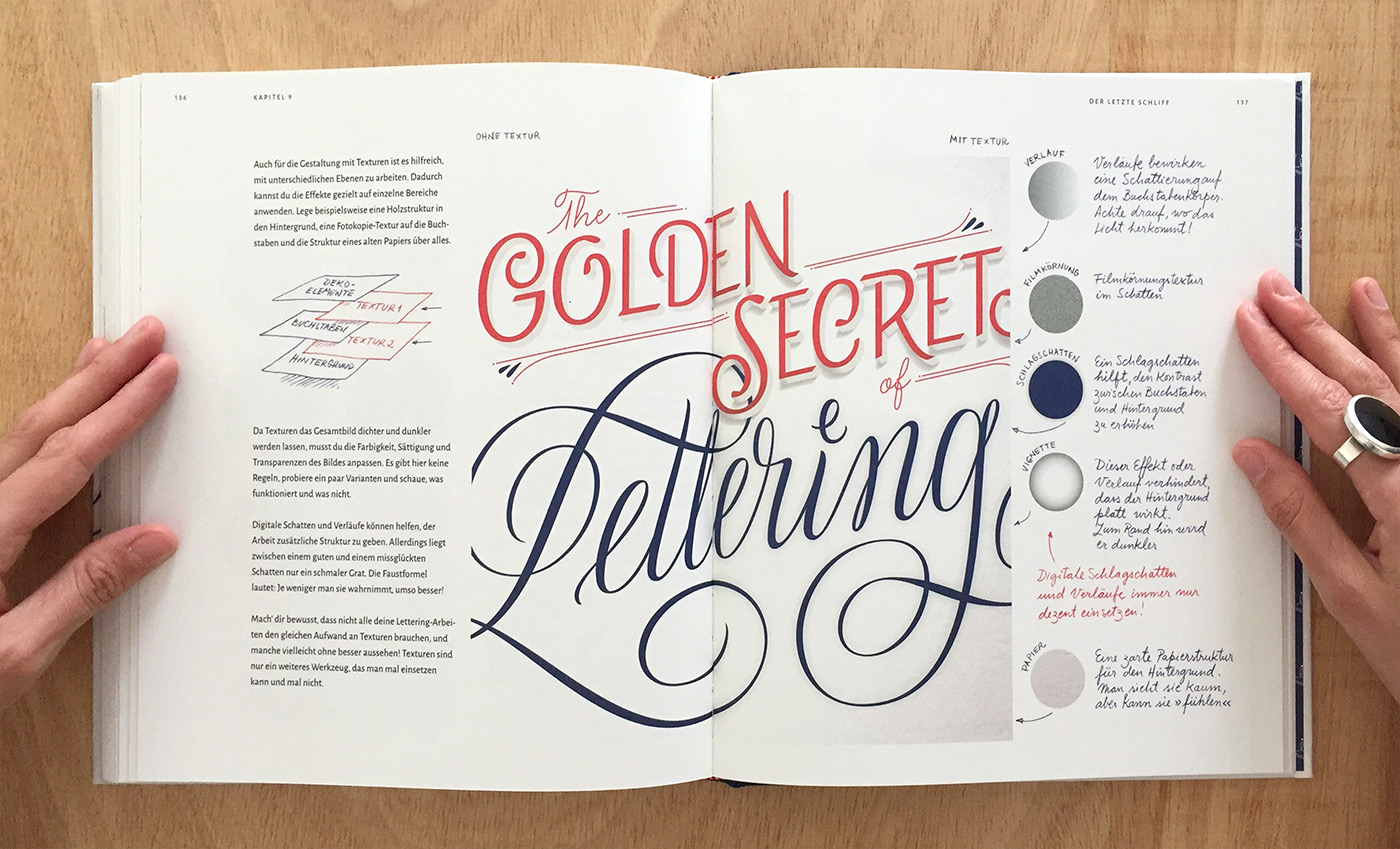 136
KAPITEL 9
Auch für die Gestaltung mit Texturen ist es hilfreich,
mit unterschiedlichen Ebenen zu arbeiten. Dadurch
kannst du die Effekte gezielt auf einzelne Bereiche
anwenden. Lege beispielsweise eine Holzstruktur in
den Hintergrund, eine Fotokopie-Textur auf die Buch-
staben und die Struktur eines alten Papiers über alles.
DEKO-
ELEMENTE
TEXTUR 1
BUCHSTABEN
TEXTUR 2
HINTERGRUND
Da Texturen das Gesamtbild dichter und dunkler
werden lassen, musst du die Farbigkeit, Sättigung und
Transparenzen des Bildes anpassen. Es gibt hier keine
Regeln, probiere ein paar Varianten und schaue, was
funktioniert und was nicht.
Digitale Schatten und Verläufe können helfen, der
Arbeit zusätzliche Struktur zu geben. Allerdings liegt
zwischen einem guten und einem missglückten
Schatten nur ein schmaler Grat. Die Faustformel
lautet: Je weniger man sie wahrnimmt, umso besser!
Mach' dir bewusst, dass nicht alle deine Lettering-Arbei-
ten den gleichen Aufwand an Texturen brauchen, und
manche vielleicht ohne besser aussehen! Texturen sind
nur ein weiteres Werkzeug, das man mal einsetzen
kann und mal nicht.
OHNE TEXTUR
MIT TEXTUR
The
GOLDEN
SECRETS
of
Lettering
DER LETZTE SCHLIFF
137
VERLAUF
Verläufe bewirken
eine Schattierung auf
dem Buchstabenkörper.
Achte drauf, wo das
Licht herkommt!
FILMKÖRNUNG
Filmkörnungstextur
im Schatten
SCHLAGSCHATTEN
Ein Schlagschatten
hilft, den Kontrast
zwischen Buchstaben
und Hintergrund
zu erhöhen
VIGNETTE
Dieser Effekt oder
Verlauf verhindert,
dass der Hintergrund
platt wirkt.
Zum Rand hin wird
er dunkler
Digitale Schlagschatten
und Verläufe immer nur
dezent einsetzen!
PAPIER
Eine zarte Papierstruktur
für den Hintergrund.
Man sieht sie kaum,
aber kann sie »fühlen«